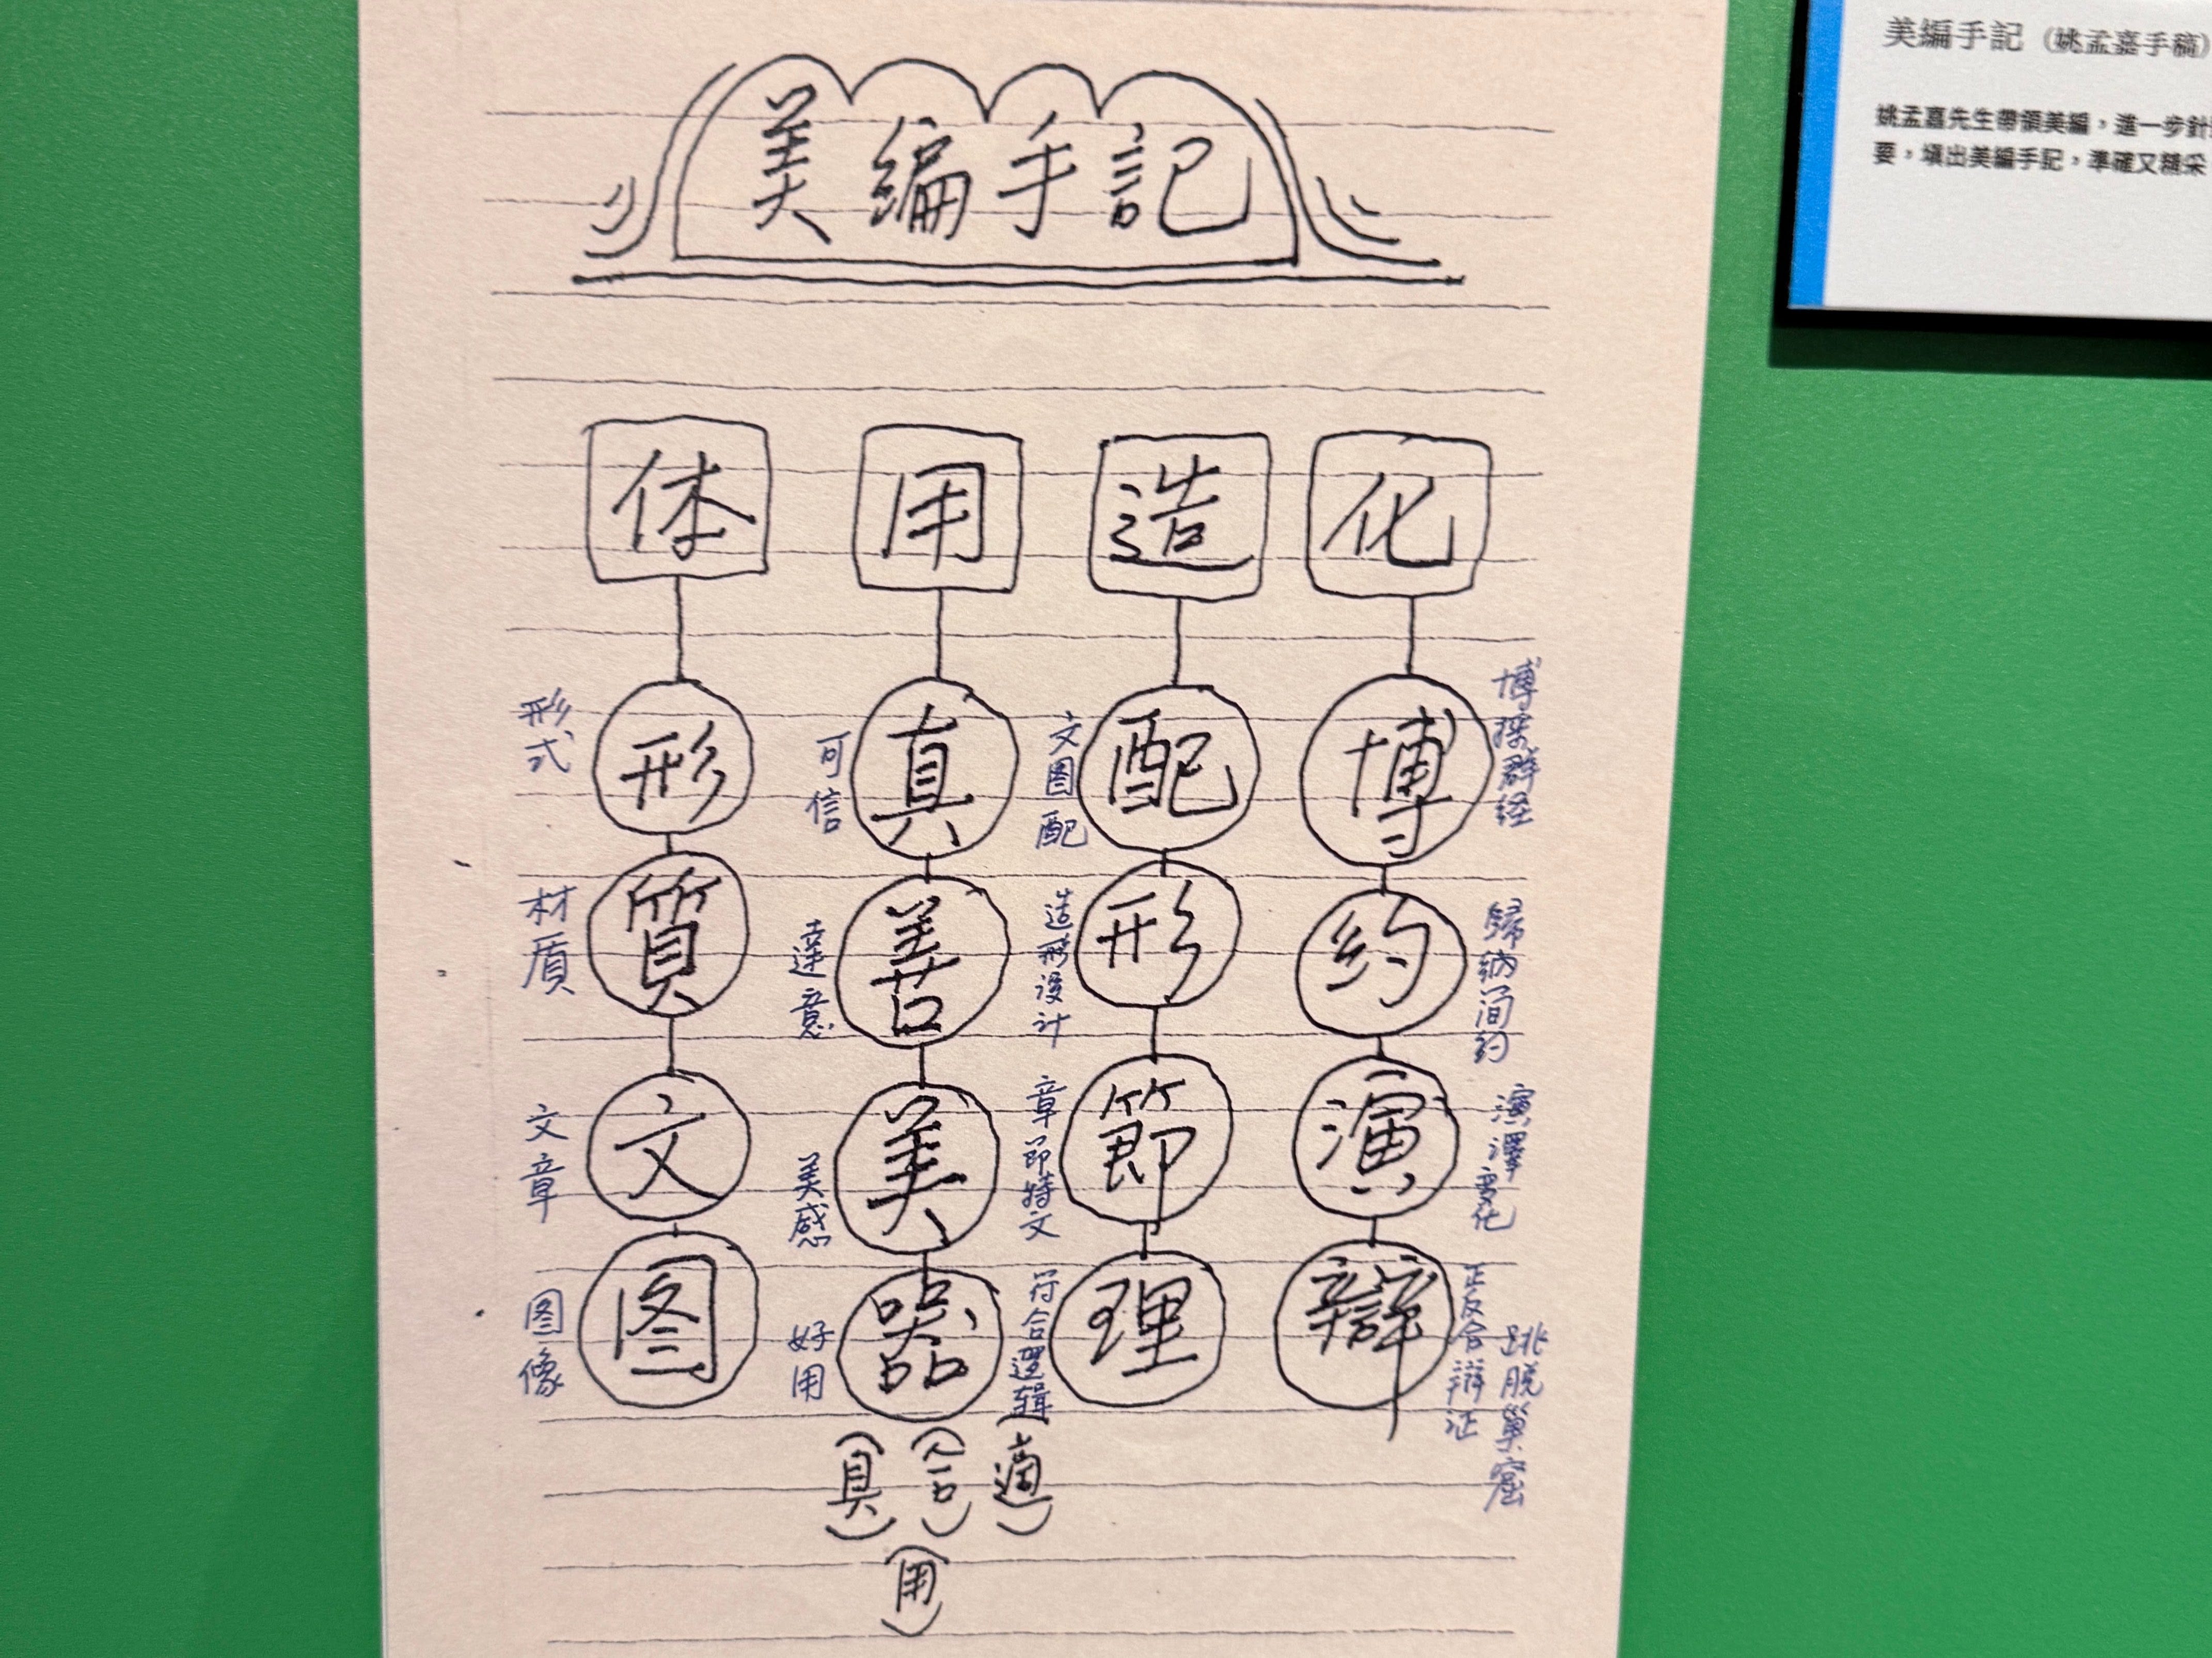 美編手記
体 用 造 化
形式
形
質
文
图
材质
文章
图像
可信
真
善
美
器
達意
美感
好用
(真) (合) (適)
(用)
文圖配
配
形
節
理
造形设计
章節特文
符合邏辑
博
约
演
辯
博採群经
歸納简约
演澤变化
正反合辩证
跳脱巢窟
美編手記（姚孟嘉手稿）
姚孟嘉先生帶領美編，進一步針
要，填出美編手記，準確又精采